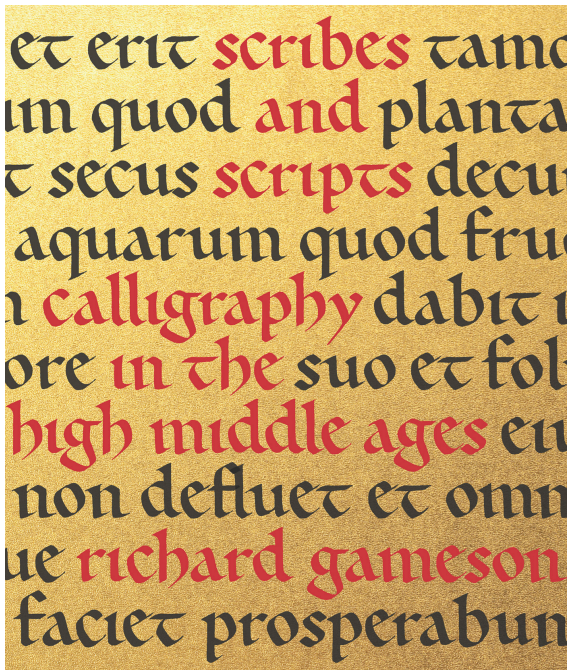 et erit scribes tamq
um quod and planta
t secus scripts decur
aquarum quod fruc
n calligraphy dabit
ore in the suo et fol
high middle ages eiu
non defluet et omn
ue richard gameson
faciet prosperabun